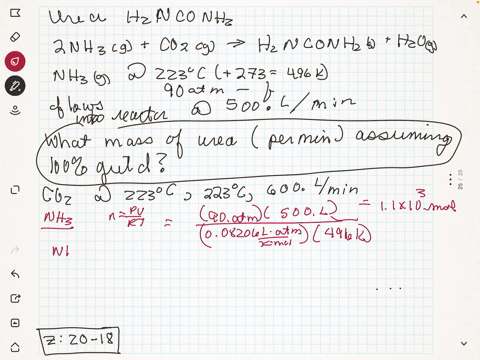 Urea H₂NCONH₃
2NH₃(g) + CO₂(g) → H₂NCONH₂(s) + H₂O(g)
NH₃(g) @ 223°C (+273 = 496K)
90 atm
flows into reactor @ 500. L/min
What mass of urea (per min) assuming
100% yield?
CO₂ @ 223°C, 223°C, 600. L/min
NH₃ n = PV/RT = (90. atm)(500. L) / (0.08206 L·atm/K·mol)(496K) = 1.1 x 10³ mol
NI
25 / 25
Z: 20-18